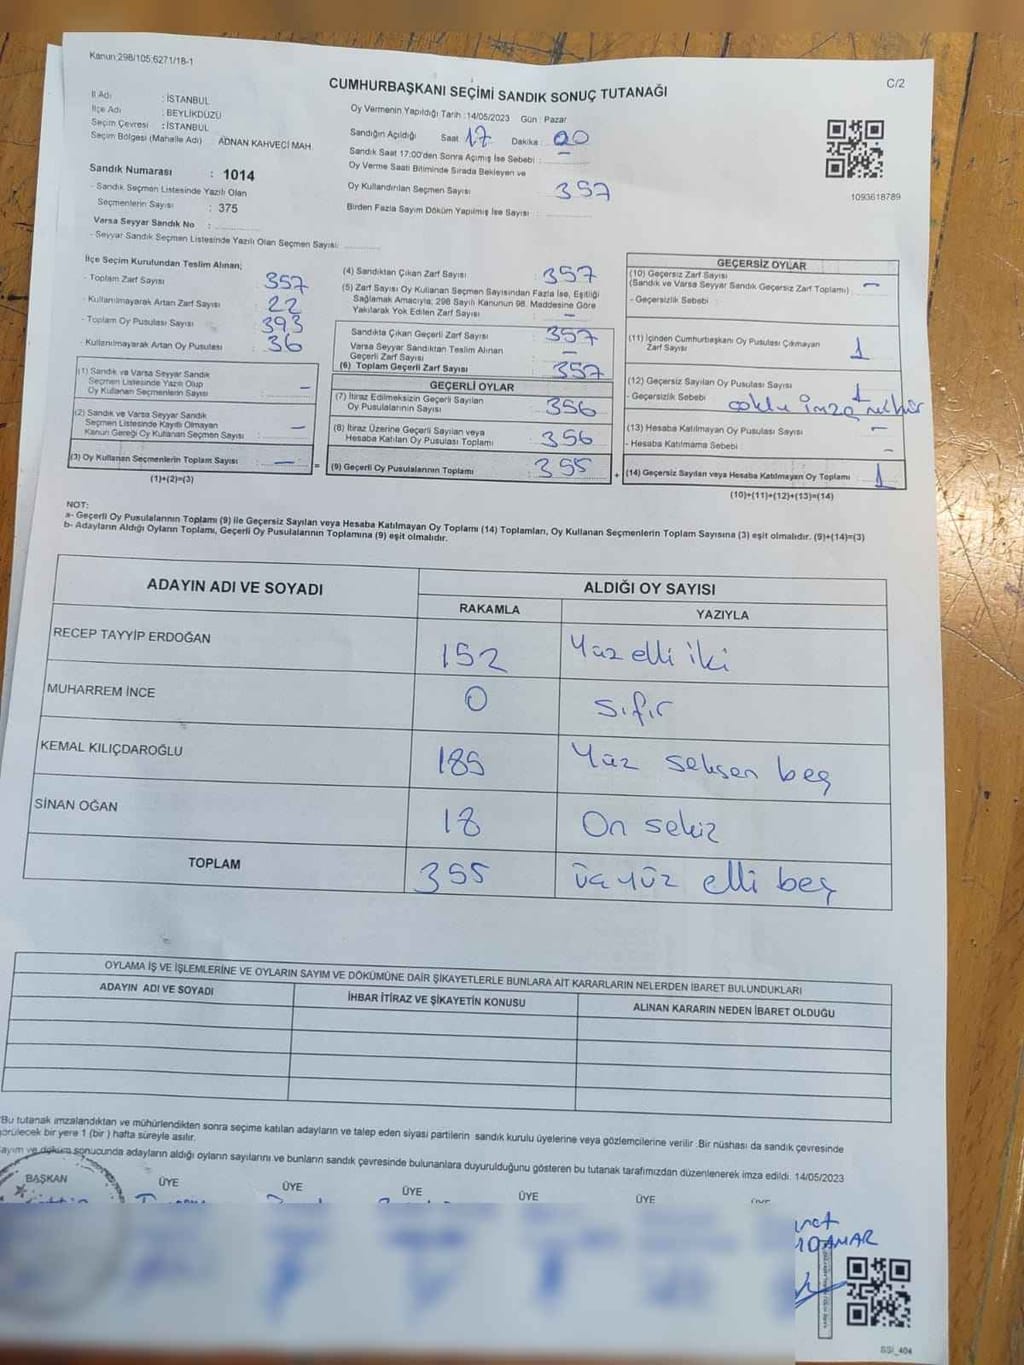 Kanun:298/105;6271/18-1
C/2
CUMHURBAŞKANI SEÇİMİ SANDIK SONUÇ TUTANAĞI
İl Adı : İSTANBUL
İlçe Adı : BEYLİKDÜZÜ
Seçim Çevresi : İSTANBUL
Seçim Bölgesi (Mahalle Adı) ADNAN KAHVECİ MAH.
Oy Vermenin Yapıldığı Tarih :14/05/2023 Gün : Pazar
Sandığın Açıldığı Saat 17 Dakika : 00
Sandık Saat 17:00'den Sonra Açımış İse Sebebi :
Oy Verme Saati Bitiminde Sırada Bekleyen ve
Oy Kullandırılan Seçmen Sayısı 357
Birden Fazla Sayım Döküm Yapılmış İse Sayısı :
1093618789
Sandık Numarası : 1014
- Sandık Seçmen Listesinde Yazılı Olan
Seçmenlerin Sayısı : 375
Varsa Seyyar Sandık No :
- Seyyar Sandık Seçmen Listesinde Yazılı Olan Seçmen Sayısı:
İlçe Seçim Kurulundan Teslim Alınan;
- Toplam Zarf Sayısı 357
- Kullanılmayarak Artan Zarf Sayısı : 22
- Toplam Oy Pusulası Sayısı : 393
- Kullanılmayarak Artan Oy Pusulası : 36
(1) Sandık ve Varsa Seyyar Sandık
Seçmen Listesinde Yazılı Olup
Oy Kullanan Seçmenlerin Sayısı : –
(2) Sandık ve Varsa Seyyar Sandık
Seçmen Listesinde Kayıtlı Olmayan
Kanun Gereği Oy Kullanan Seçmen Sayısı : –
(3) Oy Kullanan Seçmenlerin Toplam Sayısı : – =
(1)+(2)=(3)
(4) Sandıktan Çıkan Zarf Sayısı : 357
(5) Zarf Sayısı Oy Kullanan Seçmen Sayısından Fazla İse, Eşitliği
Sağlamak Amacıyla, 298 Sayılı Kanunun 98. Maddesine Göre
Yakılarak Yok Edilen Zarf Sayısı : –
Sandıkta Çıkan Geçerli Zarf Sayısı : 357
Varsa Seyyar Sandıktan Teslim Alınan
Geçerli Zarf Sayısı : –
(6) Toplam Geçerli Zarf Sayısı : 357
GEÇERLİ OYLAR
(7) İtiraz Edilmeksizin Geçerli Sayılan
Oy Pusulalarının Sayısı : 356
(8) İtiraz Üzerine Geçerli Sayılan veya
Hesaba Katılan Oy Pusulası Toplamı : 356
(9) Geçerli Oy Pusulalarının Toplamı : 355 +
GEÇERSİZ OYLAR
(10) Geçersiz Zarf Sayısı
(Sandık ve Varsa Seyyar Sandık Geçersiz Zarf Toplamı) : –
- Geçersizlik Sebebi
(11) İçinden Cumhurbaşkanı Oy Pusulası Çıkmayan
Zarf Sayısı : 1
(12) Geçersiz Sayılan Oy Pusulası Sayısı : 1
- Geçersizlik Sebebi çoklu imza mühür
(13) Hesaba Katılmayan Oy Pusulası Sayısı : –
- Hesaba Katılmama Sebebi –
(14) Geçersiz Sayılan veya Hesaba Katılmayan Oy Toplamı : 1
(10)+(11)+(12)+(13)=(14)
NOT:
a- Geçerli Oy Pusulalarının Toplamı (9) ile Geçersiz Sayılan veya Hesaba Katılmayan Oy Toplamı (14) Toplamları, Oy Kullanan Seçmenlerin Toplam Sayısına (3) eşit olmalıdır. (9)+(14)=(3)
b- Adayların Aldığı Oyların Toplamı, Geçerli Oy Pusulalarının Toplamına (9) eşit olmalıdır.
ADAYIN ADI VE SOYADI
ALDIĞI OY SAYISI
RAKAMLA YAZIYLA
RECEP TAYYİP ERDOĞAN 152 Yüz elli iki
MUHARREM İNCE 0 sıfır
KEMAL KILIÇDAROĞLU 185 Yüz seksen beş
SİNAN OĞAN 18 On sekiz
TOPLAM 355 üç yüz elli beş
OYLAMA İŞ VE İŞLEMLERİNE VE OYLARIN SAYIM VE DÖKÜMÜNE DAİR ŞİKAYETLERLE BUNLARA AİT KARARLARIN NELERDEN İBARET BULUNDUKLARI
ADAYIN ADI VE SOYADI İHBAR İTİRAZ VE ŞİKAYETİN KONUSU ALINAN KARARIN NEDEN İBARET OLDUĞU
Bu tutanak imzalandıktan ve mühürlendikten sonra seçime katılan adayların ve talep eden siyasi partilerin sandık kurulu üyelerine veya gözlemcilerine verilir .Bir nüshası da sandık çevresinde
görülecek bir yere 1 (bir ) hafta süreyle asılır.
Sayım ve döküm sonucunda adayların aldığı oyların sayılarını ve bunların sandık çevresinde bulunanlara duyurulduğunu gösteren bu tutanak tarafımızdan düzenlenerek imza edildi. 14/05/2023
BAŞKAN ÜYE ÜYE ÜYE ÜYE ÜYE
SSİ_404